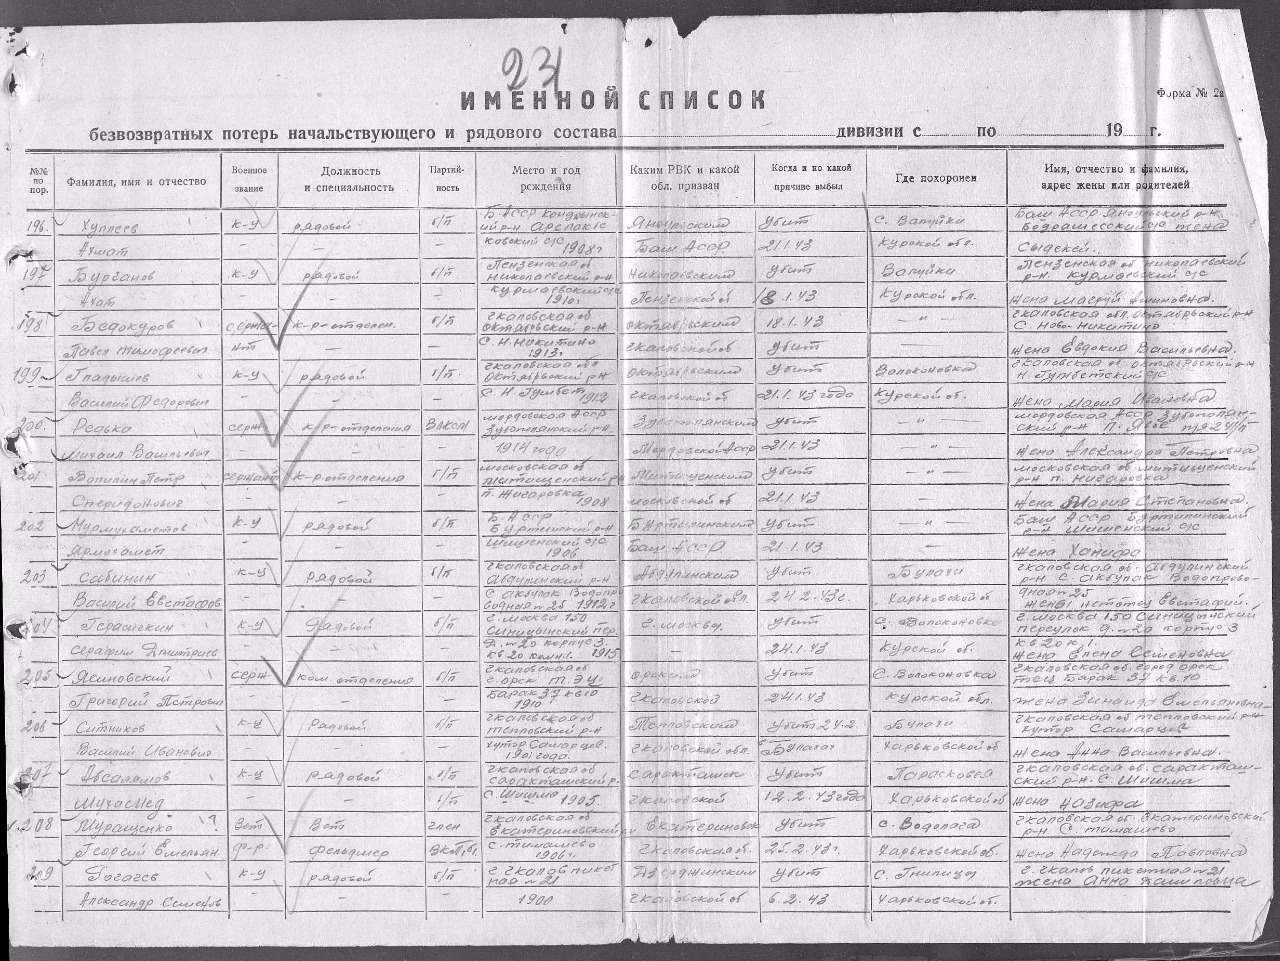 231
ИМЕННОЙ СПИСОК
Форма № 2а
безвозвратных потерь начальствующего и рядового состава дивизии с по 19 г.
№№ по пор.
Фамилия, имя и отчество
Военное звание
Должность и специальность
Партий- ность
Место и год рождения
Каким РВК и какой обл. призван
Когда и по какой причине выбыл
Где похоронен
Имя, отчество и фамилия, адрес жены или родителей
196. Хуплеев к-у рядовой б/п Б. АССР Кондрынск- Янаульский Убит С. Валуйки Баш АССР Янаульский р-н
ий р-н Арслак
Ахмат – – – ковский с/с 1908 г Баш АССР. 21.1.43 Курской обл. Сыдекей.
197 Бурганов к-у рядовой б/п Пензенская об Николаевским Убит Валуйки Пензенская об Николаевский
Николаевский р-н р-н. Курмаевский с/с
Ахат – – – Курмаевский с/с 1910 г. Пензенской об 18.1.43 Курской обл. жена
198 Бедокуров сержа- к-р-отделен. б/п Чкаловская об Октябрьским 18.1.43 – " – Чкаловская обл. Октябрьский р-н
Октябрьский р-н С. Ново-Никитино
Павел Тимофеевич нт – – С. Н. Никитино 1913 г Чкаловской об Убит – жена Евдокия Васильевна.
199 Гладышев к-у рядовой б/п. Чкаловская обл Октябрьским Убит Волоконовка Чкаловская об. Октябрьский р-н
Октябрьский р-н
Василий Федорович – – – С. Н Гумбет 1912 Чкаловской об 21.1.43 года Курской об. жена Мария Ивановна
200. Редько серж к-р-отделения ВЛКСМ Мордовская АССР Зубово-полянским Убит – " – Мордовская АССР Зубополян-
Зубополянский р-н. ский р-н п. Явас
Михаил Васильевич – – 1914 года Мордовской АССР 21.1.43 – " – жена Александра Петровна
201 Вопилин Петр сержант к-р-отделения б/п Московская об Мытищенским Убит – " – Московская об Мытищенский
Мытищенский р-н р-н п. Жигаровка
Спиридонович – – – п. Жигаровка 1908 Московской об 21.1.43 – жена Мария Степановна.
202 Нурмухаметов к-у рядовой б/п Б. АССР Убит – " – Баш АССР
Ярмохамет – – – 1906 Баш. АССР. 21-1.43 – жена Ханифа
203 Сабинин к-у рядовой б/п Чкаловская об Абдулинским Убит Булахи Чкаловская об. Абдулинский
Абдулинский р-н р-н С. Акбулак Водопрово-
Василий Евстафов – – – С Акбулак Водопро Чкаловской обл. 24.2.43 г. Харьковской об дная № 25
водная № 25 1912 г
204 Герасичкин к-у рядовой б/п г. Москва 150 г. Москву. Убит С. Волоконовка г. Москва 150 Синицынский
Синицынский пер. переулок д. № 20 корпус 3
Серафим Дмитриев – – – д. № 20 корпус 3 – 24.1.43 Курской об. кв 20 к 1.
1915 жена Елена Семеновна
205 Ясиновский серж ком. отделения б/п Чкаловская об Орским Убит С. Волоконовка Чкаловская об. город Орск
г. Орск ТЭЦ ТЭЦ Барак 37 кв. 10
Григорий Петрович – – – Барак 37 кв 10 1910 г Чкаловской 24.1.43 Курской обл. жена Зинаида Емельяновна
206 Ситников к-у рядовой б/п Чкаловская об Тепловским Убит 24.2. Булахи Чкаловская об Тепловский р-н
Тепловский р-н хутор Самарцев
Василий Иванович – – – хутор Самарцев. 1901 года. Чкаловской обл. Булахах Харьковской об жена Анна Васильевна.
207 Абсалямов к-у рядовой б/п Чкаловская об Саракташск Убит Парасковея Чкаловская об. Саракташ-
Саракташский р. ский р-н. С. Шишма
Мухамед – – б/п С. Шишма 1905. Чкаловской 12.2.43 года Харьковской об жена Назифа
208 Муращенко ? Вет Вет член Чкаловская об Екатериновск Убит с. Водолага Чкаловская об. Екатериновский
Екатериновский р-н С. Тимашево
Георгий Емельян. ф-р. фельдшер ВКП/б/. С. Тимашево 1906 г. Чкаловская об. 25.2.43 г. Харьковской об. жена Надежда Павловна
209 Гогагев к-у рядовой б/п г. Чкалов пикет Дзержинским Убит с. Гнилицы г. Чкалов пикетная № 21
ная № 21 жена Анна
Александр Семенов – – – 1900 Чкаловской об 6.2.43 Харьковской об.